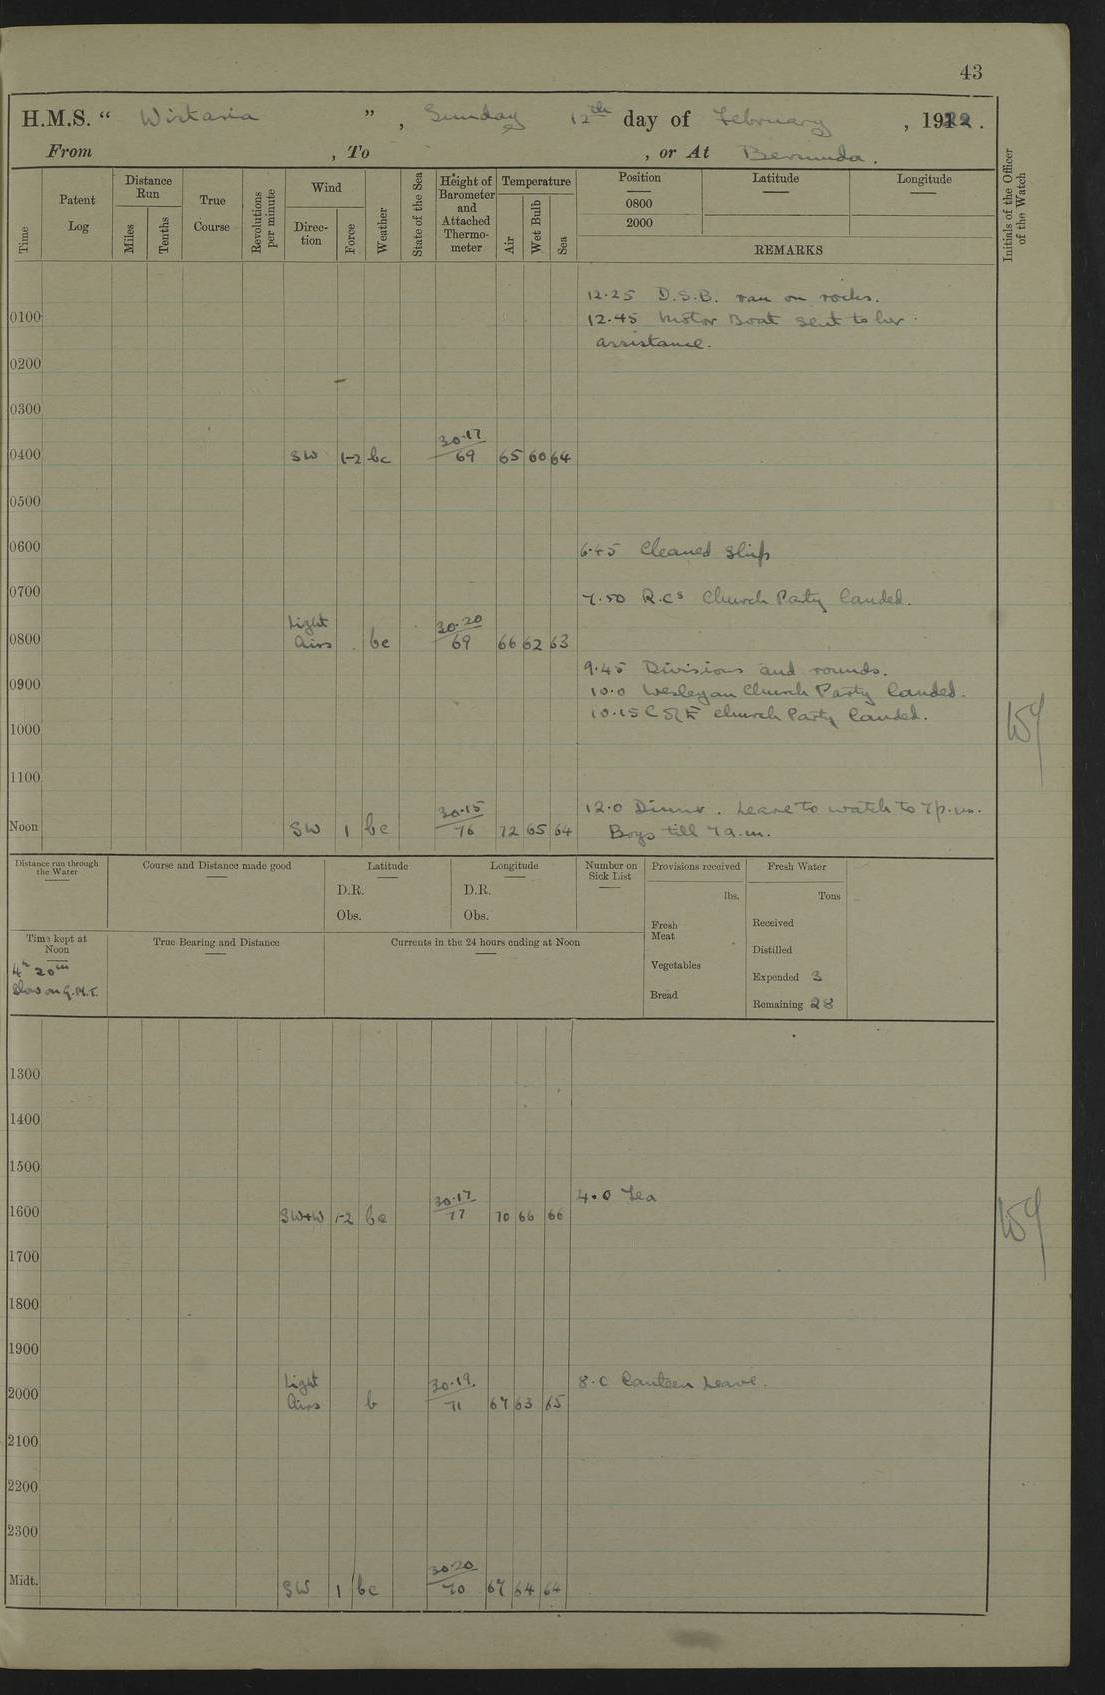 43
H.M.S. " Wistaria ", Sunday 12th day of February, 1922.
From , To , or At Bermuda.
Time
Patent Log
Distance Run
Miles
Tenths
True Course
Revolutions per minute
Wind
Direc-tion
Force
Weather
State of the Sea
Height of Barometer and Attached Thermo-meter
Temperature
Air
Wet Bulb
Sea
Position
0800
2000
Latitude
Longitude
REMARKS
Initials of the Officer of the Watch
12.25 D.S.B. ran on rocks.
0100 12.45 Motor Boat sent to her
assistance.
0200
0300
0400 SW 1-2 bc 30.17/69 65 60 64
0500
0600 6.45 Cleaned Ship
0700 7.50 R.Cs Church Party landed.
0800 Light Airs bc 30.20/69 66 62 63
9.45 Divisions and rounds.
0900 10.0 Wesleyan Church Party landed.
10.15 C of E Church Party landed.
1000
1100
12.0 Dinner. Leave to watch to 7 p.m.
Noon SW 1 bc 30.15/76 72 65 64 Boys till 7 a.m.
Distance run through the Water
Course and Distance made good
Latitude
D.R.
Obs.
Longitude
D.R.
Obs.
Number on Sick List
Provisions received
lbs.
Fresh Meat
Vegetables
Bread
Fresh Water
Tons
Received
Distilled
Expended 3
Remaining 28
Time kept at Noon
4h 20m
Slow on G.M.T.
True Bearing and Distance
Currents in the 24 hours ending at Noon
1300
1400
1500
4.0 Tea
1600 SW+W 1-2 bc 30.17/77 70 66 66
1700
1800
1900
8.0 Canteen Leave.
2000 Light Airs b 30.19/71 67 63 65
2100
2200
2300
Midt. SW 1 bc 30.20/70 67 64 64